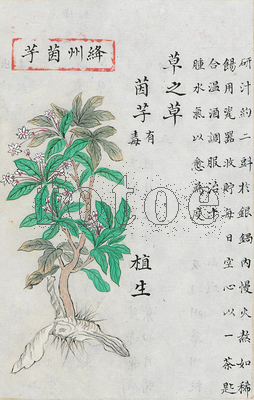 絳州茵芋
研汁約二㪷於銀鍋內慢火熬如稀
餳用瓷器收貯每日空心以一茶匙
合溫酒調服治卒
腫水氣以愈為度
草之草
茵芋有毒
植生